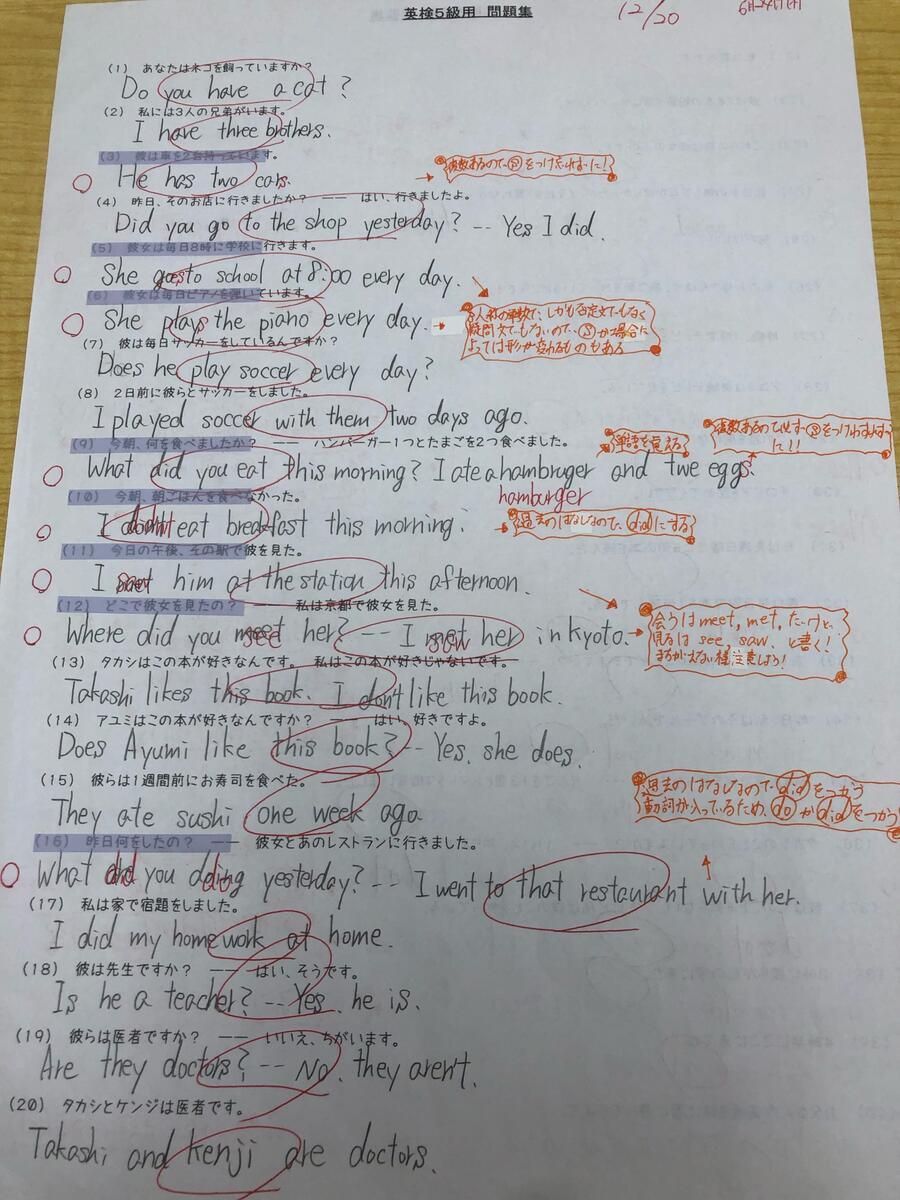 英検5級用 問題集
12/20
6月24日(月)
(1) あなたはネコを飼っていますか?
Do you have a cat?
(2) 私には3人の兄弟がいます。
I have three brothers.
(3) 彼は車を2台持っています。
He has two cars.
複数あるので、ⓢをつけ忘れずに!!
(4) 昨日、そのお店に行きましたか? ―― はい、行きましたよ。
Did you go to the shop yesterday? -- Yes I did.
(5) 彼女は毎日8時に学校に行きます。
She goes to school at 8:00 every day.
(6) 彼女は毎日ピアノを弾いています。
She plays the piano every day.
3人称の単数で、しかも否定文でもなく
疑問文でもないので、ⓢか場合に
よっては形が変わるものもある
(7) 彼は毎日サッカーをしているんですか?
Does he play soccer every day?
(8) 2日前に彼らとサッカーをしました。
I played soccer with them two days ago.
(9) 今朝、何を食べましたか? ―― ハンバーガー1つとたまごを2つ食べました。
単語を覚える
複数あるのでⓢをつけわすれず
に!!
What did you eat this morning? I ate a hambruger and twe eggs.
hamburger
(10) 今朝、朝ごはんを食べなかった。
I didn't eat breakfast this morning.
過去のはなしなので、didにする
(11) 今日の午後、その駅で彼を見た。
I saw him at the station this afternoon.
(12) どこで彼女を見たの? ―― 私は京都で彼女を見た。
Where did you see her? -- I saw her in Kyoto.
会うは meet, met, だけど、
見るは see, saw, と書く!
まちがえない様注意しよう!
(13) タカシはこの本が好きなんです。 私はこの本が好きじゃないです。
Takashi likes this book. I don't like this book.
(14) アユミはこの本が好きなんですか? ―― はい、好きですよ。
Does Ayumi like this book? -- Yes, she does.
(15) 彼らは1週間前にお寿司を食べた。
They ate sushi one week ago.
過去のはなしなので、didをつかう
動詞が入っているため、doかdidをつかう
(16) 昨日何をしたの? ―― 彼女とあのレストランに行きました。
What did you do yesterday? -- I went to that restaurant with her.
(17) 私は家で宿題をしました。
I did my homework at home.
(18) 彼は先生ですか? ―― はい、そうです。
Is he a teacher? -- Yes, he is.
(19) 彼らは医者ですか? ―― いいえ、ちがいます。
Are they doctors? -- No, they aren't.
(20) タカシとケンジは医者です。
Takashi and kenji are doctors.